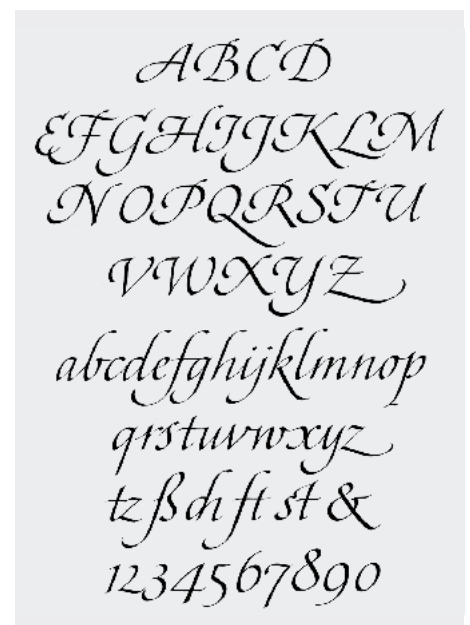 ABCD
EFGHIJKLM
NOPQRSTU
VWXYZ
abcdefghijklmnop
qrstuvwxyz
tz ß ch ft st &
1234567890